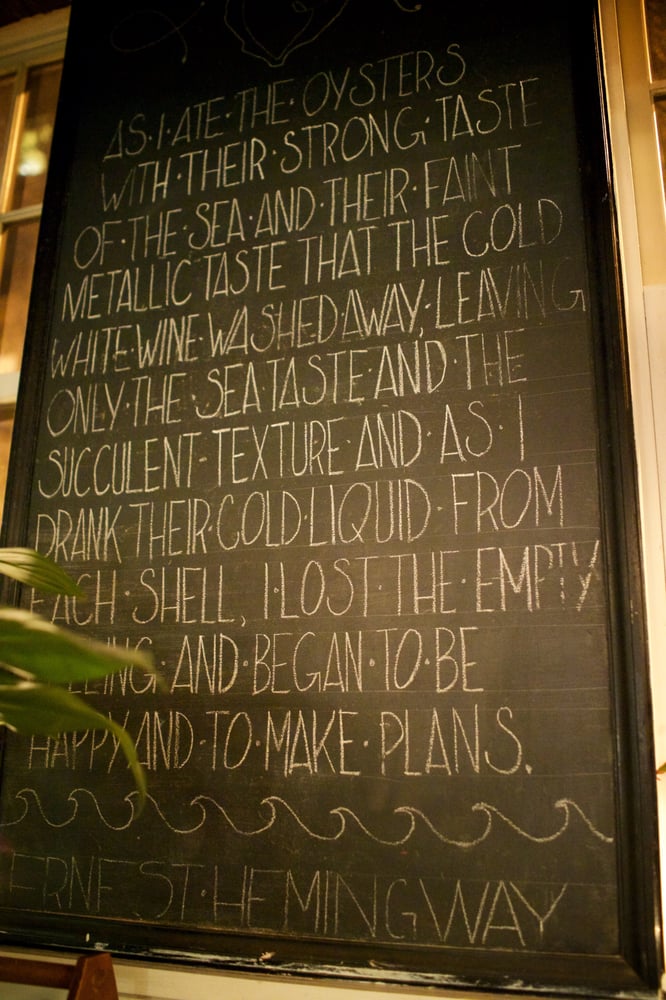 AS·I·ATE·THE·OYSTERS
WITH·THEIR·STRONG·TASTE
OF·THE·SEA·AND·THEIR·FAINT
METALLIC TASTE THAT THE COLD
WHITE·WINE WASHED AWAY, LEAVING
ONLY·THE·SEA TASTE AND·THE
SUCCULENT·TEXTURE AND·AS·I
DRANK THEIR·COLD·LIQUID·FROM
EACH·SHELL, I·LOST·THE·EMPTY
FEELING·AND·BEGAN·TO·BE
HAPPY AND·TO·MAKE·PLANS.
ERNEST·HEMINGWAY